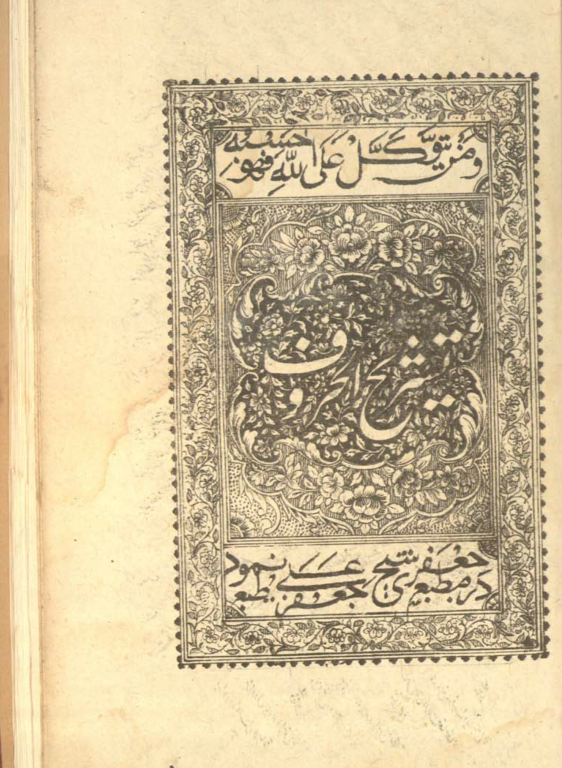 ومن يتوكل على الله فهو حسبه
تشريح الحروف
در مطبع جعفری شیخ جعفر علی طبع نمود